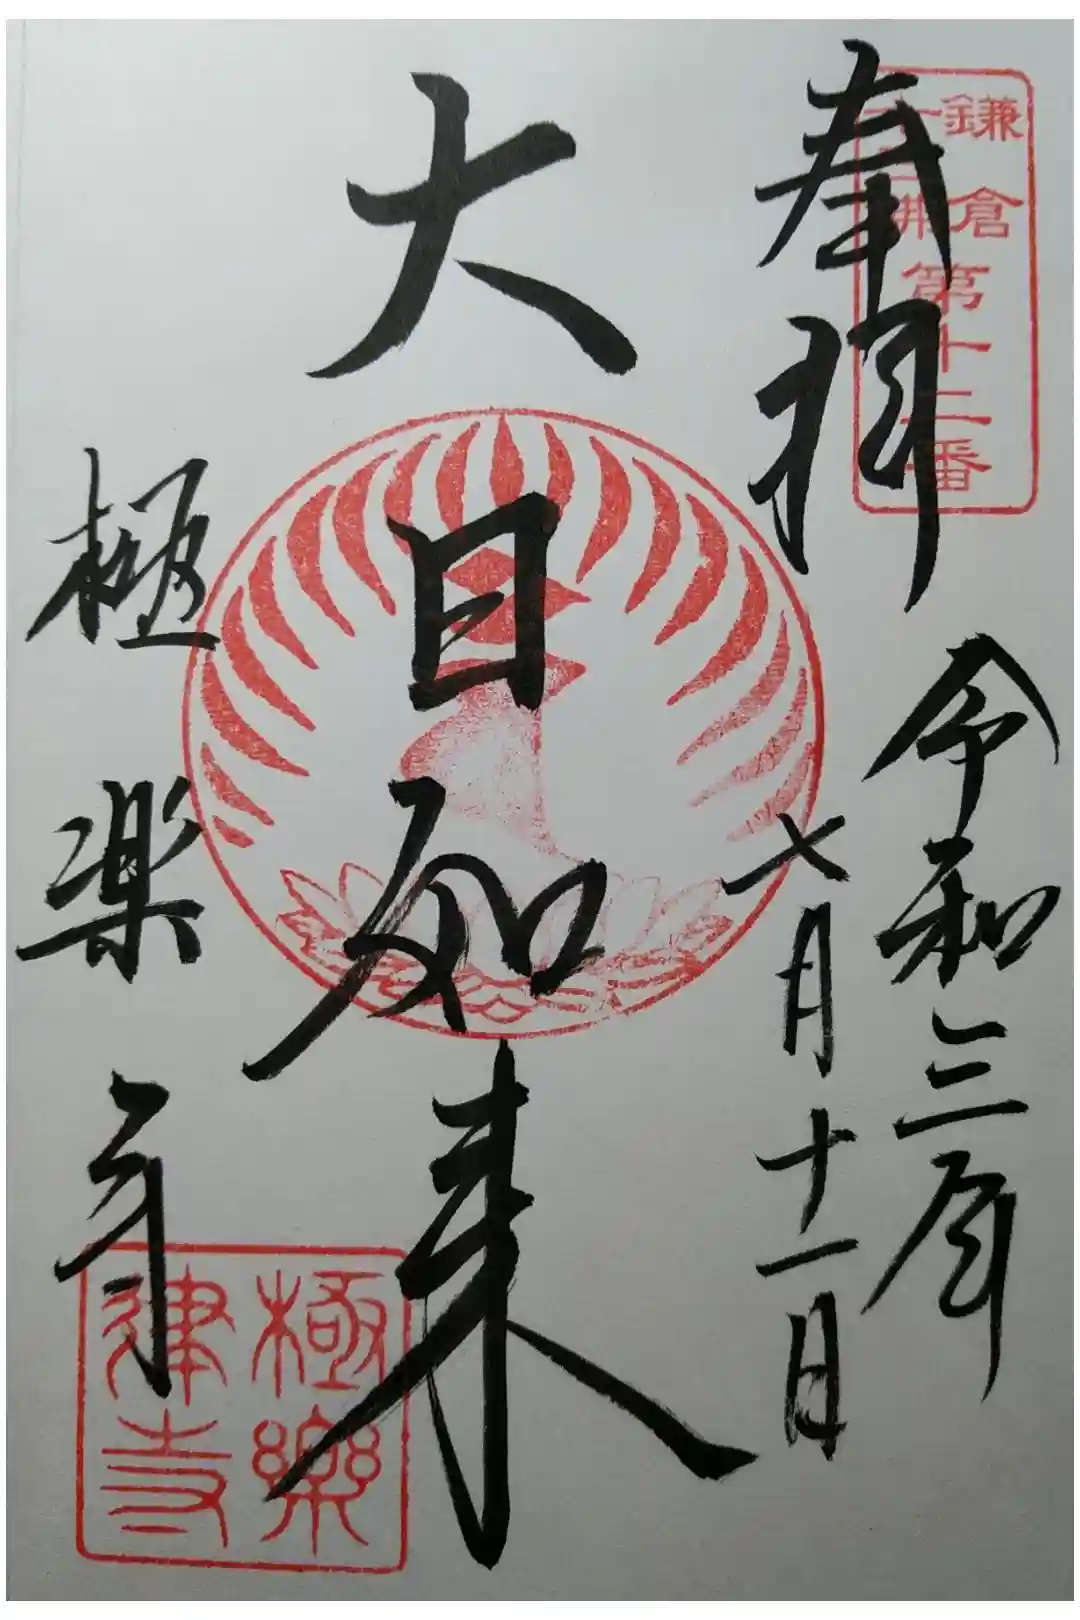 奉拝
鎌倉
十三佛
第十二番
令和三年
七月十一日
大日如来
極楽寺
極樂
律寺